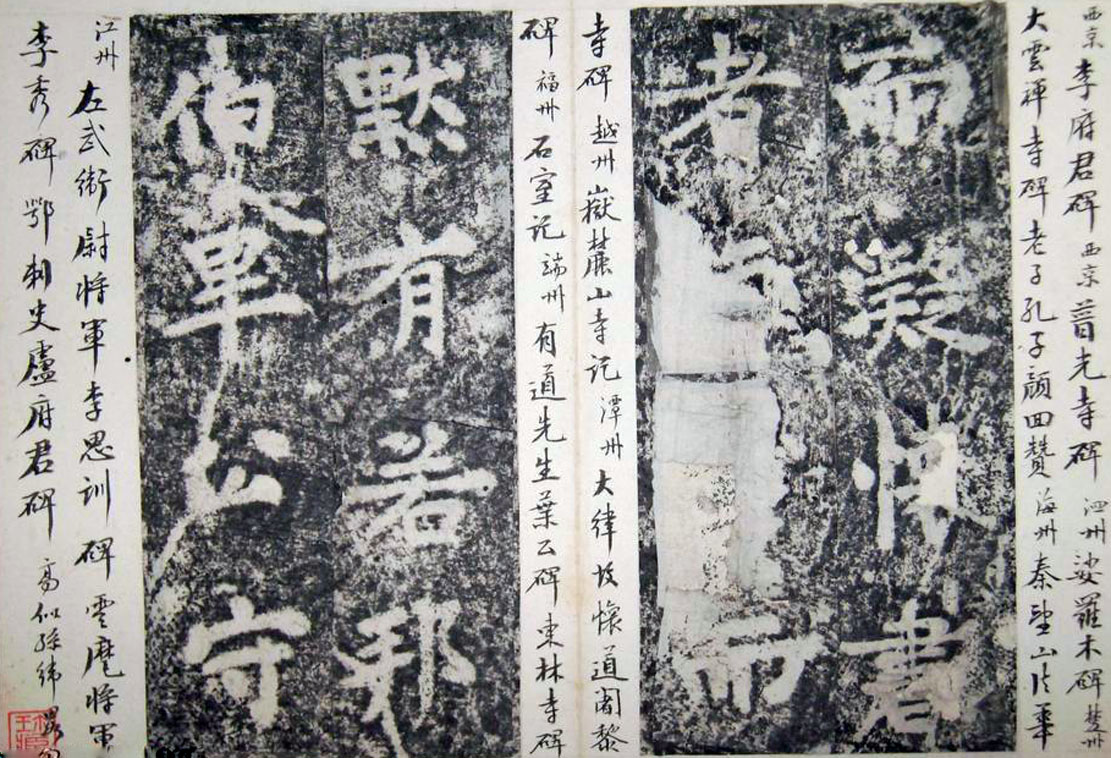 西京 李府君碑 西京 普光寺碑 泗州 娑羅木碑 楚州
大雲禪寺碑 老子孔子顏回贊 海州 秦望山法華
而 閒 書
者 而
寺碑 越州 嶽麓山寺记 潭州 大律故懷道闍黎
碑 福州 石室记 端州 有道先生葉公碑 東林寺碑
默 有 若 邦
伯 畢 公 守
江州 左武衛尉將軍李思训碑 雲麾將軍
李秀碑 鄂刺史盧府君碑 高似孫緯略